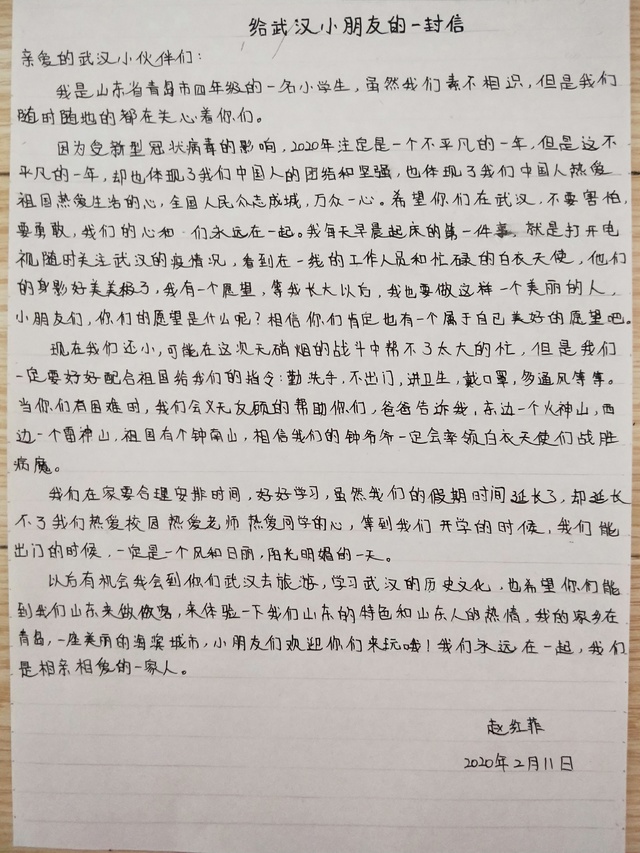 给武汉小朋友的一封信
亲爱的武汉小伙伴们:
我是山东省青岛市四年级的一名小学生,虽然我们素不相识,但是我们
随时随地的都在关心着你们。
因为受新型冠状病毒的影响,2020年注定是一个不平凡的一年,但是这不
平凡的一年,却也体现了我们中国人的团结和坚强,也体现了我们中国人热爱
祖国热爱生活的心,全国人民众志成城,万众一心。希望你们在武汉,不要害怕,
要勇敢,我们的心和 们永远在一起。我每天早晨起床的第一件事,就是打开电
视随时关注武汉的疫情况,看到在一线的工作人员和忙碌的白衣天使,他们
的身影好美美极了,我有一个愿望,等我长大以后,我也要做这样一个美丽的人,
小朋友们,你们的愿望是什么呢?相信你们肯定也有一个属于自己美好的愿望吧。
现在我们还小,可能在这次无硝烟的战斗中帮不了太大的忙,但是我们
一定要好好配合祖国给我们的指令:勤洗手,不出门,讲卫生,戴口罩,多通风等等。
当你们有困难时,我们会义无反顾的帮助你们,爸爸告诉我,东边一个火神山,西
边一个雷神山,祖国有个钟南山,相信我们的钟爷爷一定会率领白衣天使们战胜
病魔。
我们在家要合理安排时间,好好学习,虽然我们的假期时间延长了,却延长
不了我们热爱校园热爱老师热爱同学的心,等到我们开学的时候,我们能
出门的时候,一定是一个风和日丽,阳光明媚的一天。
以后有机会我会到你们武汉去旅游,学习武汉的历史文化,也希望你们能
到我们山东来做做客,来体验一下我们山东的特色和山东人的热情,我的家乡在
青岛,一座美丽的海滨城市,小朋友们欢迎你们来玩哦!我们永远在一起,我们
是相亲相爱的一家人。
赵红菲
2020年2月11日